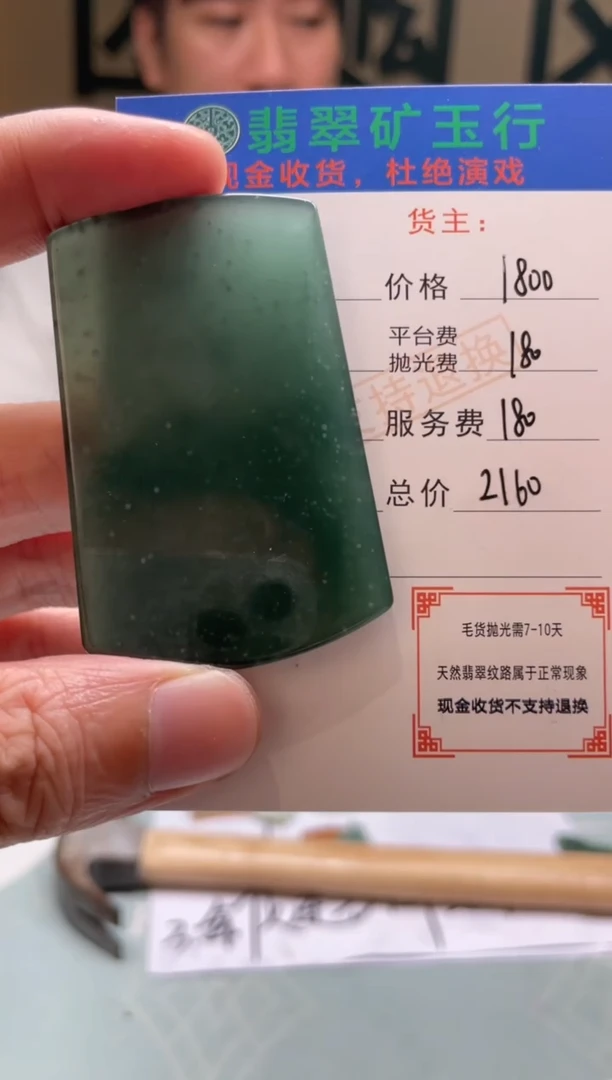 翡翠矿玉行
现金收货，杜绝演戏
货主：
价格 1800
平台费
抛光费 180
服务费 180
持退换
总价 2160
毛货抛光需7-10天
天然翡翠纹路属于正常现象
现金收货不支持退换